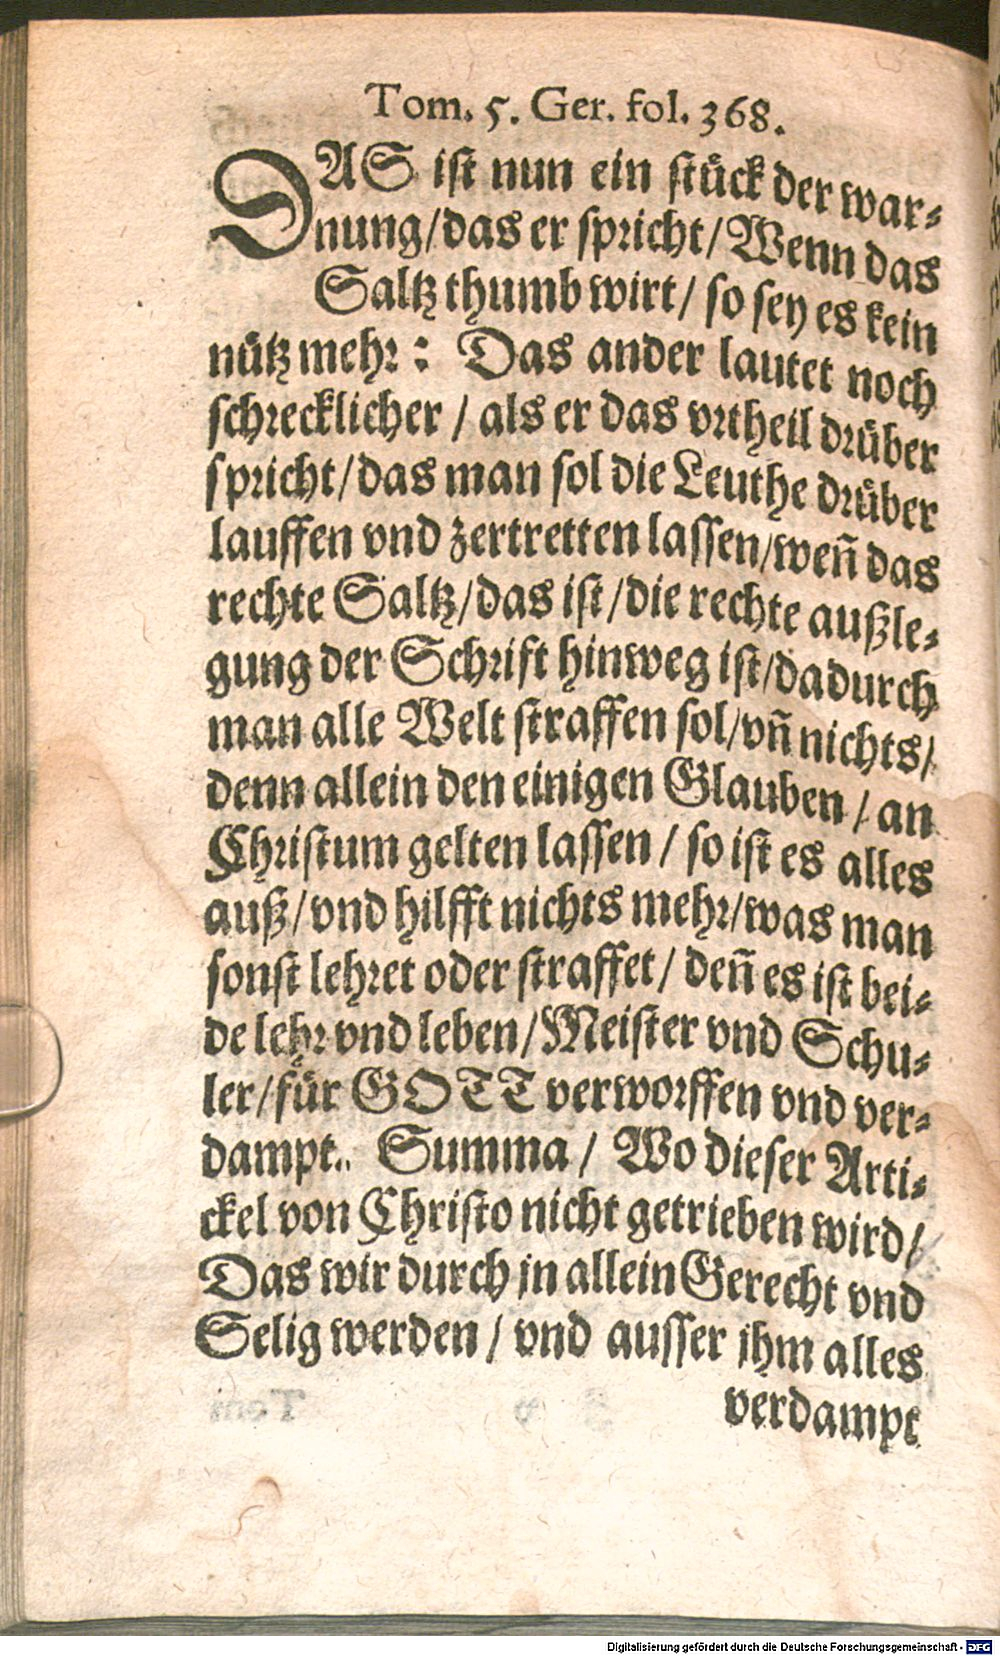 Tom. 5. Ger. fol. 368.
DAS ist nun ein stück der war⸗
nung/das er spricht/Wenn das
Saltz thumb wirt/ so sey es kein
nütz mehr : Das ander lautet noch
schrecklicher / als er das vrtheil drüber
spricht/das man sol die Leuthe drüber
lauffen vnd zertretten lassen/weñ das
rechte Saltz/das ist/die rechte außle⸗
gung der Schrift hinweg ist/dadurch
man alle Welt straffen sol/vñ nichts/
denn allein den einigen Glauben / an
Christum gelten lassen / so ist es alles
auß/vnd hilfft nichts mehr/was man
sonst lehret oder straffet/ deñ es ist bei⸗
de lehr vnd leben/Meister vnd Schu⸗
ler/für GOTT verworffen vnd ver⸗
dampt.. Summa / Wo dieser Arti⸗
ckel von Christo nicht getrieben wird/
Das wir durch jn allein Gerecht vnd
Selig werden / vnd ausser jhm alles
verdampt
Digitalisierung gefördert durch die Deutsche Forschungsgemeinschaft - DFG